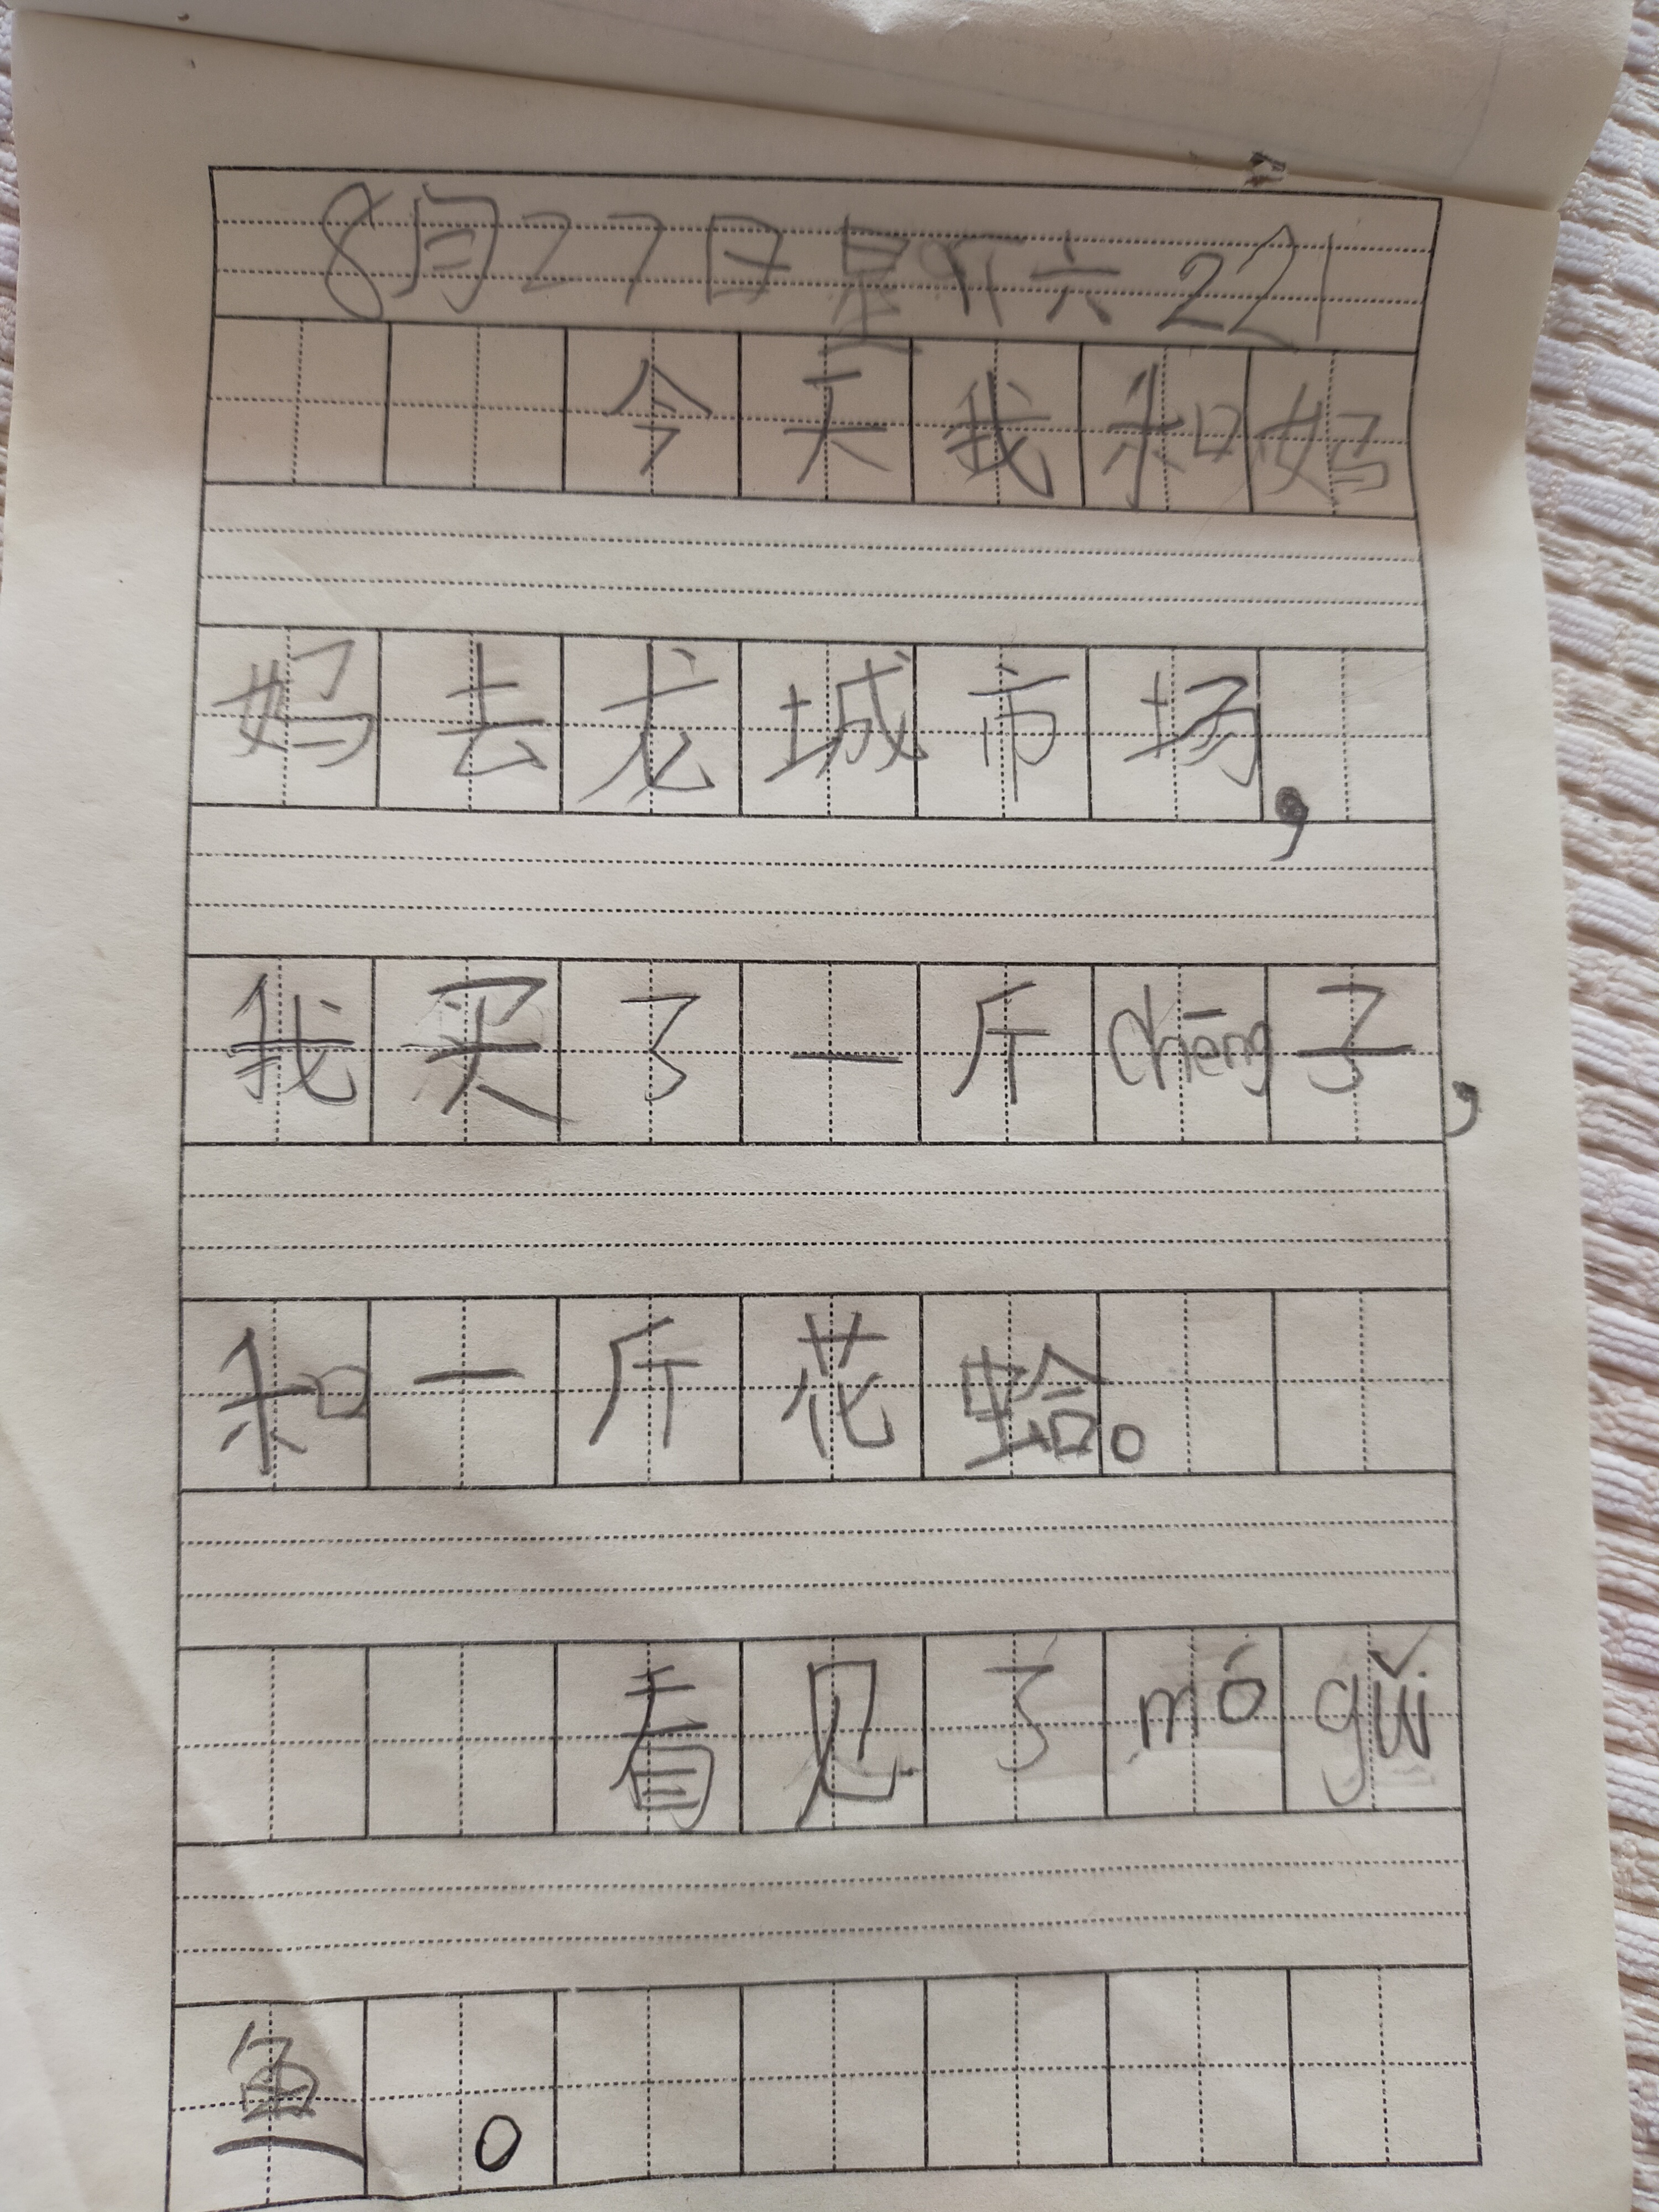 8月27日星期六 221
今天我和妈
妈去龙城市场，
我买了一斤chēng子，
和一斤花蛤。
看见了mó gǔi
鱼。